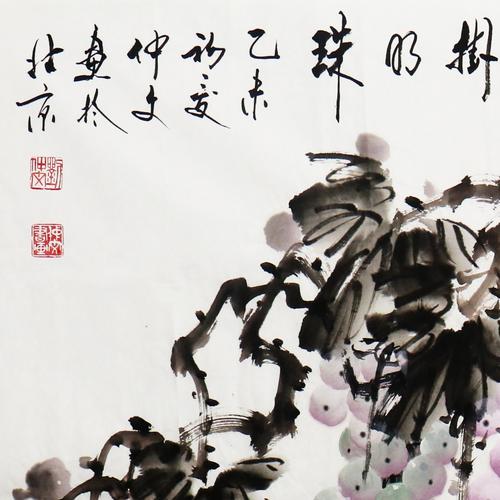 掛明珠
乙未
初夏
仲文
畫於
北京